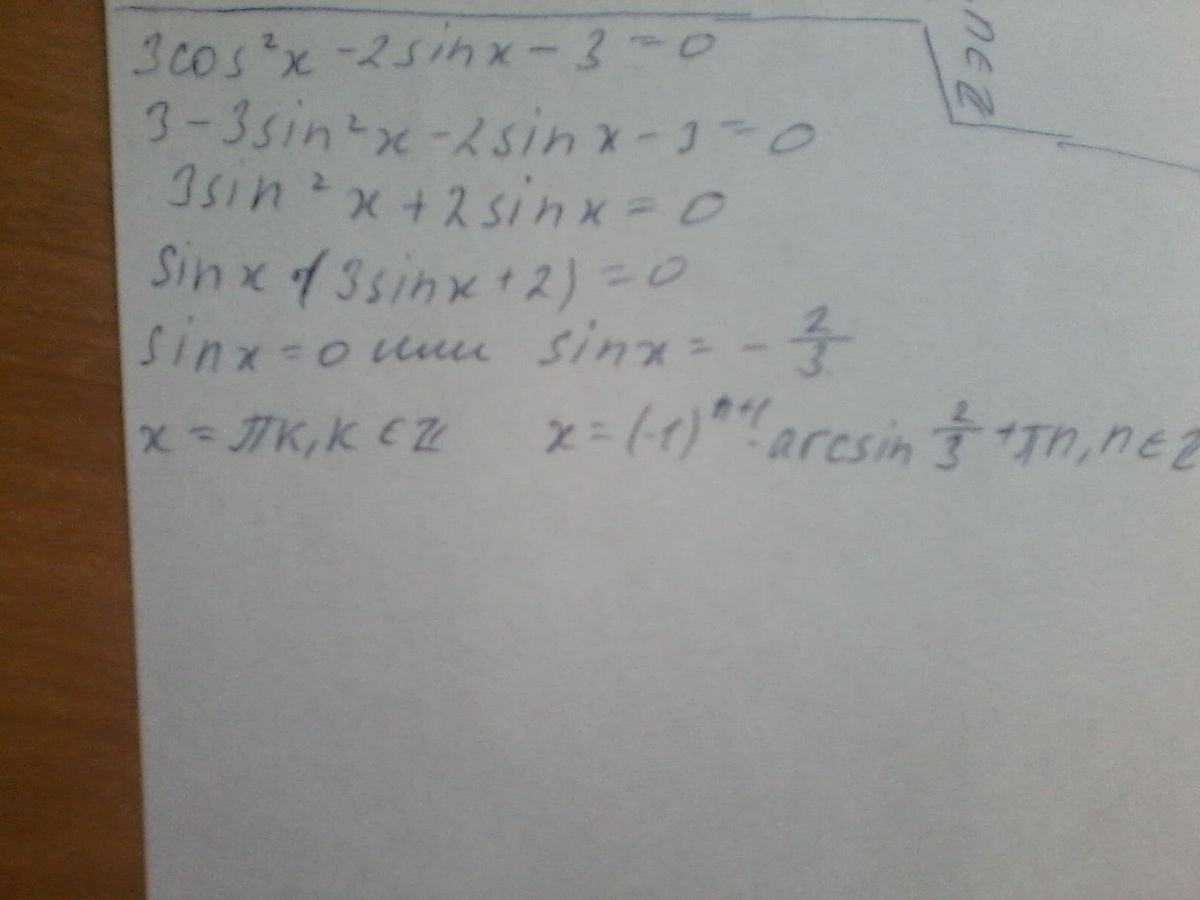 3cos²x - 2sinx - 3 = 0
n∈Z
3 - 3sin²x - 2sinx - 3 = 0
3sin²x + 2sinx = 0
sinx (3sinx + 2) = 0
sinx = 0 или sinx = - 2/3
x = πk, k ∈ Z x = (-1)ⁿ⁺¹ · arcsin 2/3 + πn, n ∈ Z